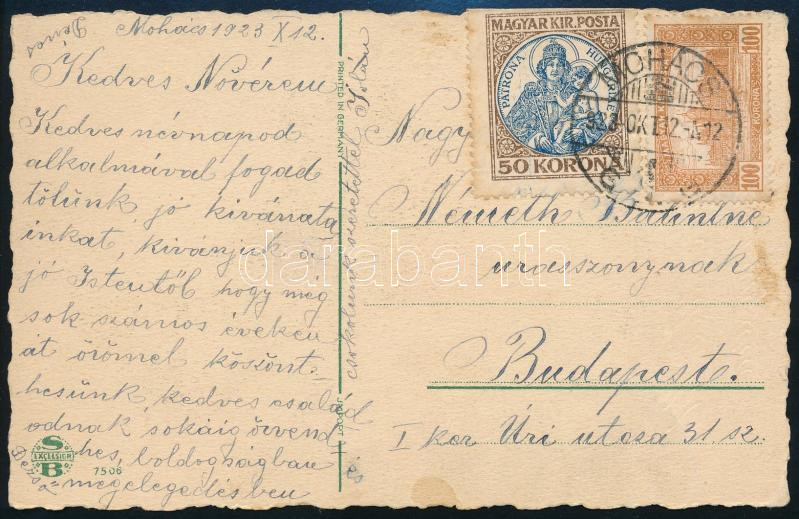 Mohács 1923 X 12.
Kedves Nővérem
Kedves névnapod
alkalmával fogad
tőlünk jó kivánata
inkat, kivánjuk a
jó Istentől hogy még
sok számos éveken
át örömel köszönt-
hesünk, kedves család
odnak sokáig örvend
hes, boldogságban
megelegedésben
és
csokolunk szeretettel Jolán
PRINTED IN GERMANY
IMPORT
S EXCELSIOR B
7506
MAGYAR KIR. POSTA
PATRONA HUNGARIAE
50 KORONA
100
KORONA
100
MOHÁCS
923 OKT 12
Nagy
Németh Bálintné
urasszonynak
Budapest.
I ker Úri utcza 31 sz.
darabanth